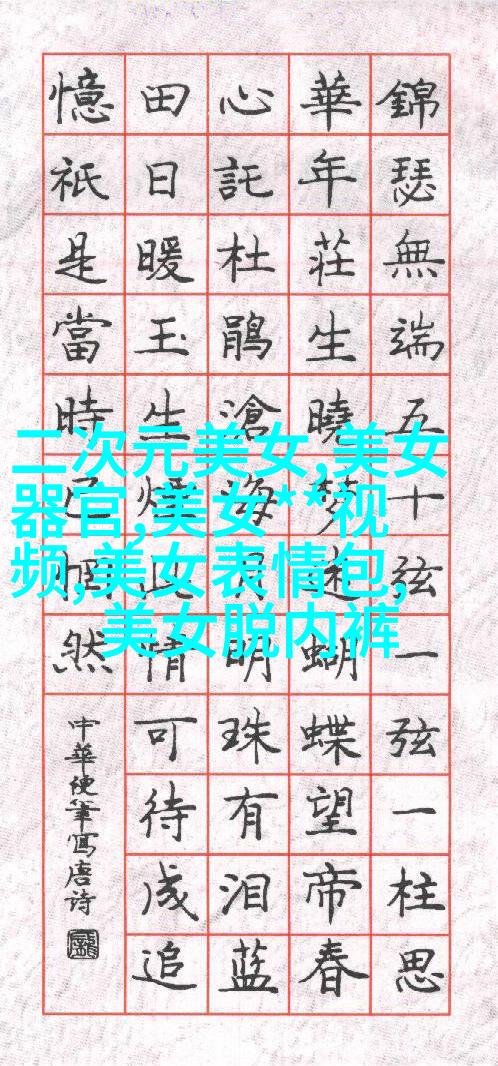 錦瑟無端五十弦一弦一柱思
華年莊生曉夢迷蝴蝶望帝春
心託杜鵑滄海月明珠有泪蓝
田日暖玉生煙此情可待成追
憶祇是當時已惘然
中華硬筆寫唐诗
二次元美女,美女
器官,美女**视
频,美女表情包,
美女脱内裤